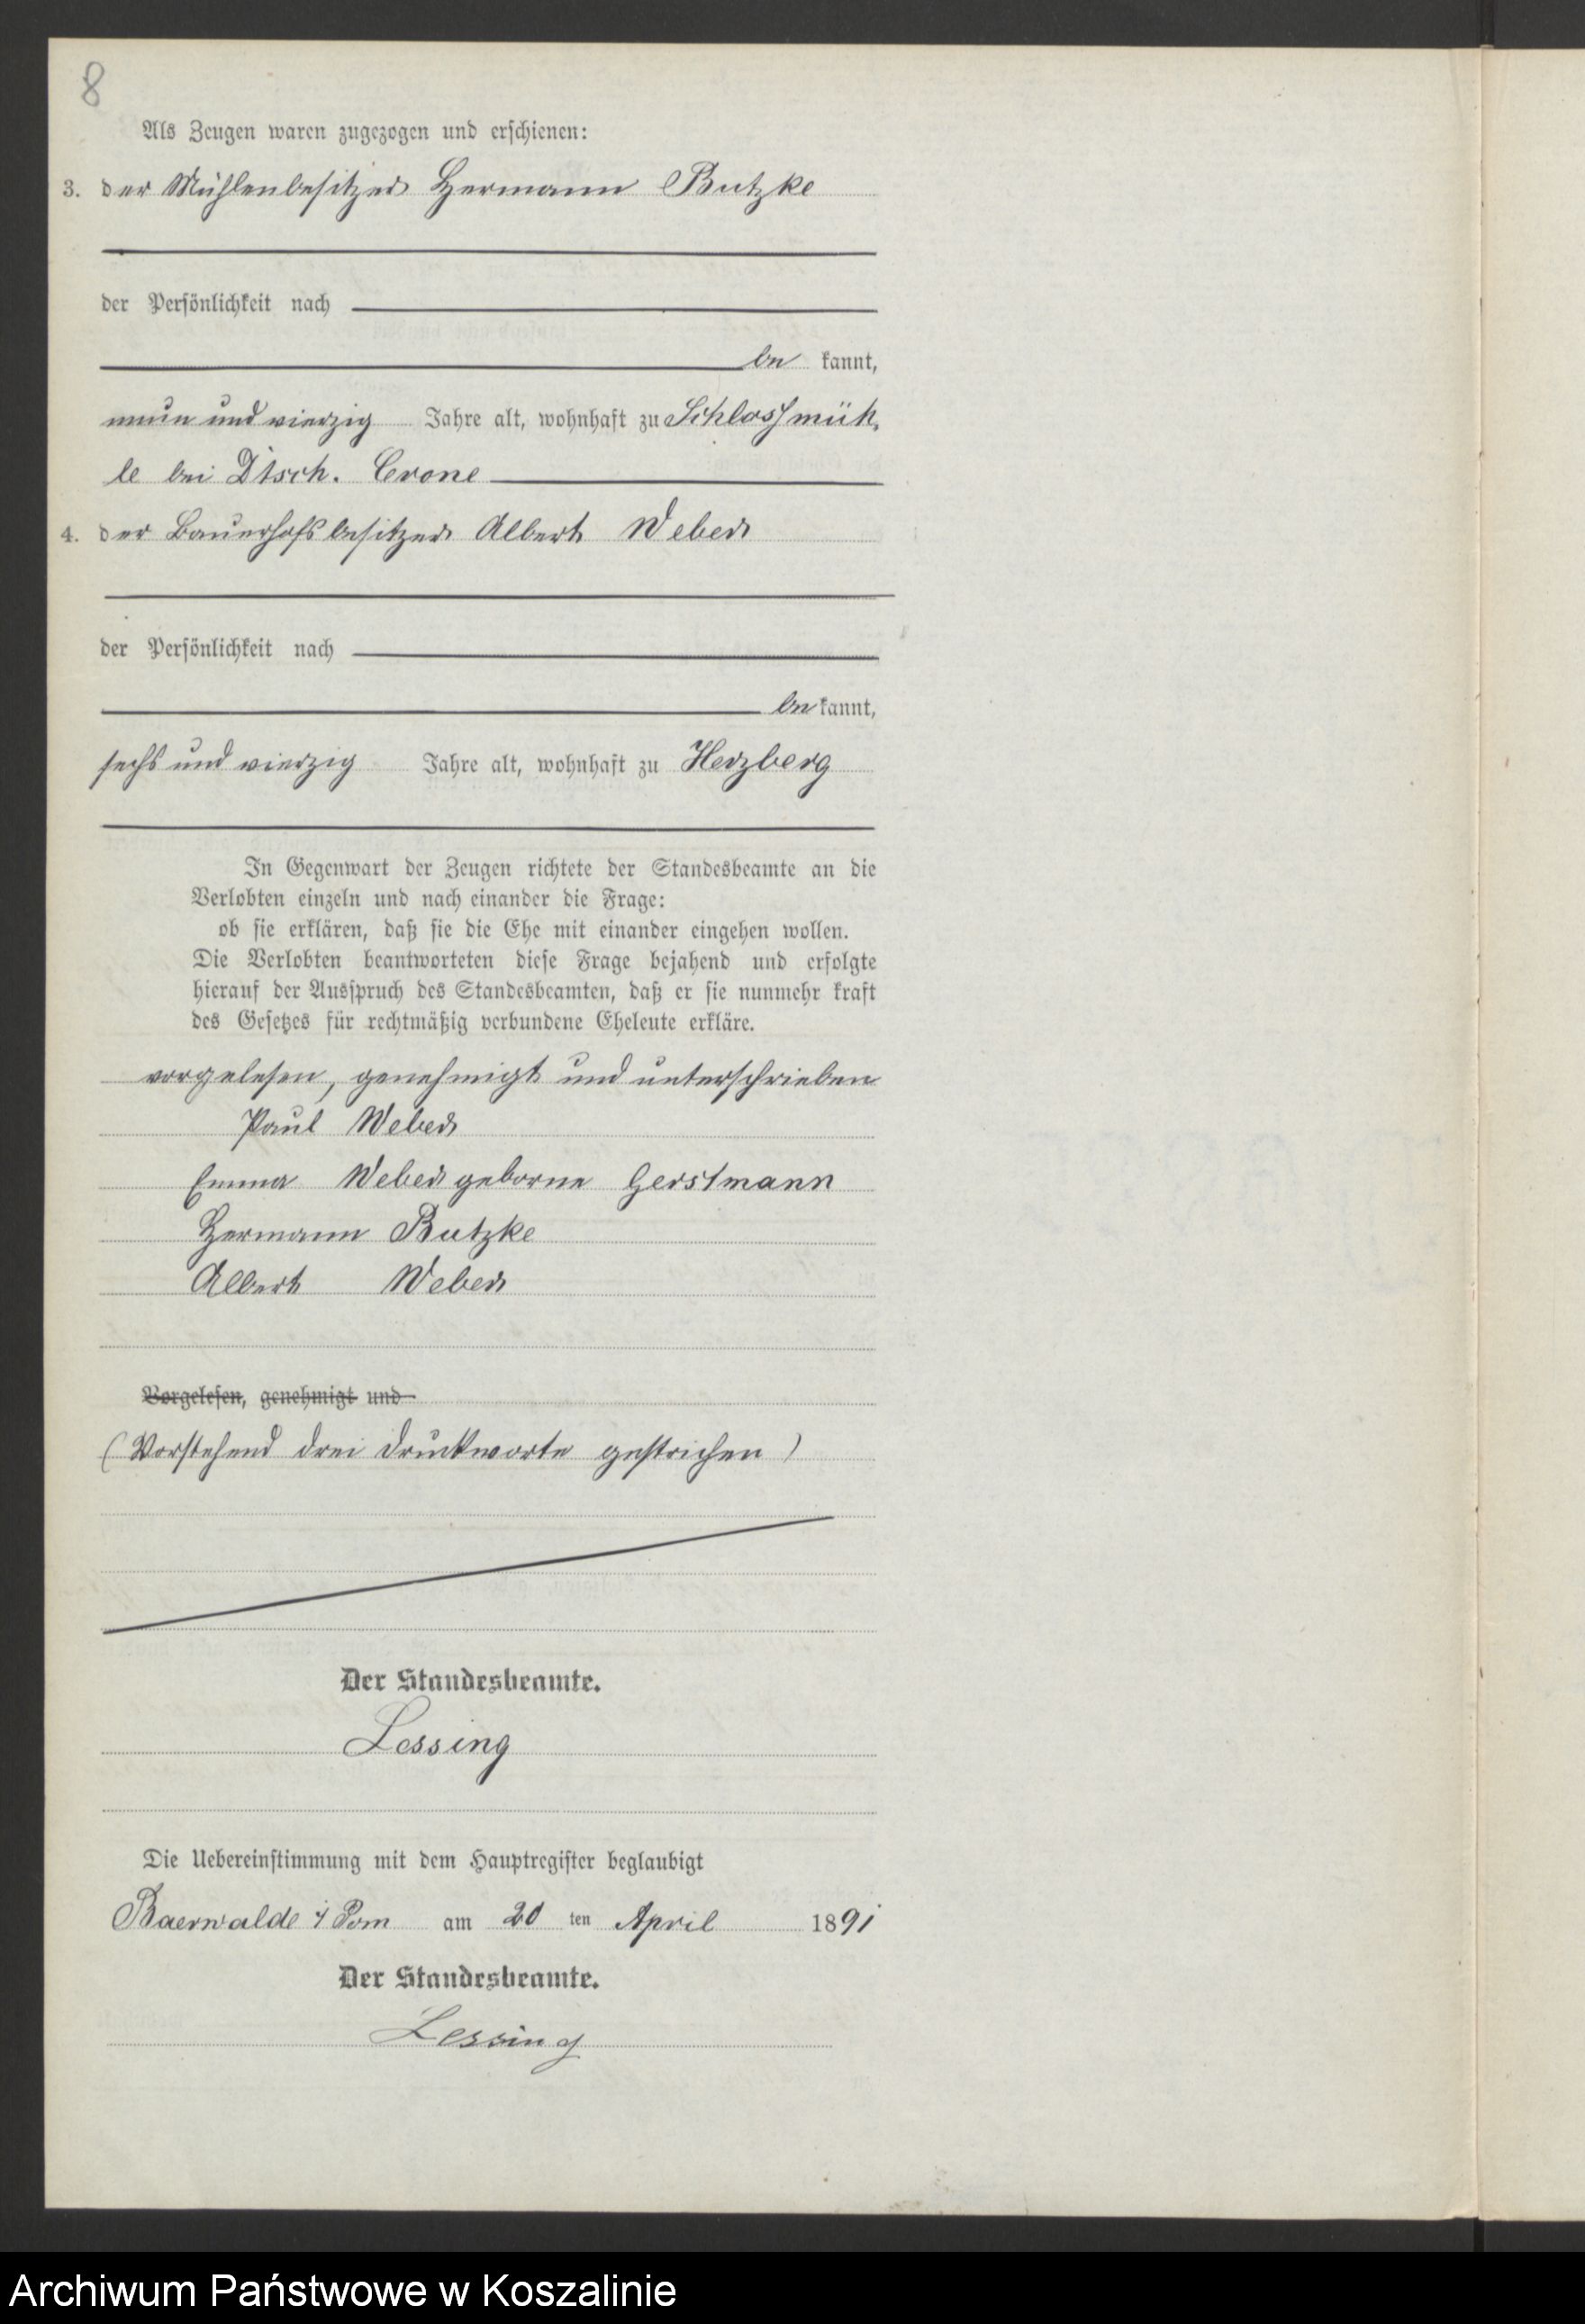 8
Als Zeugen waren zugezogen und erschienen:
3. der Mühlenbesitzer Hermann Butzke
der Persönlichkeit nach
be kannt,
neun und vierzig Jahre alt, wohnhaft zu Schlossmüh,
le bei Dtsch. Crone
4. der Bauerhofsbesitzer Albert Weber
der Persönlichkeit nach
be kannt,
sechs und vierzig Jahre alt, wohnhaft zu Herzberg
In Gegenwart der Zeugen richtete der Standesbeamte an die
Verlobten einzeln und nach einander die Frage:
ob sie erklären, daß sie die Ehe mit einander eingehen wollen.
Die Verlobten beantworteten diese Frage bejahend und erfolgte
hierauf der Ausspruch des Standesbeamten, daß er sie nunmehr kraft
des Gesetzes für rechtmäßig verbundene Eheleute erkläre.
vorgelesen, genehmigt und unterschrieben
Paul Weber
Emma Weber geborne Gerstmann
Hermann Butzke
Albert Weber
Vorgelesen, genehmigt und
(Vorstehend drei Druckworte gestrichen)
Der Standesbeamte.
Lessing
Die Uebereinstimmung mit dem Hauptregister beglaubigt
Baerwalde i/Pom am 20 ten April 1891
Der Standesbeamte.
Lessing
Archiwum Państwowe w Koszalinie